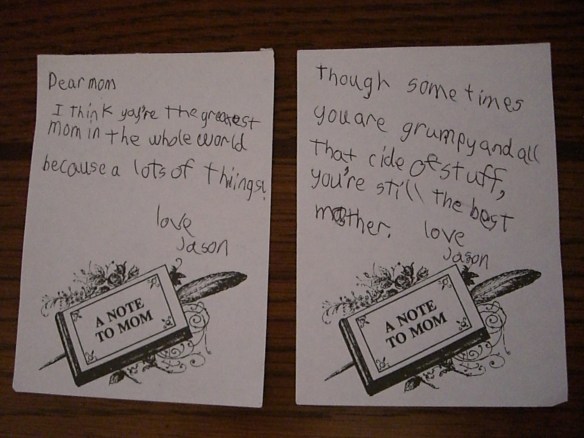 Dear mom
I think you're the greatest
mom in the whole world
because a lots of thiings!
love
Jason
A NOTE
TO MOM
Though sometimes
you are grumpy and all
that cide of stuff,
you're still the best
mother.
love
Jason
A NOTE
TO MOM